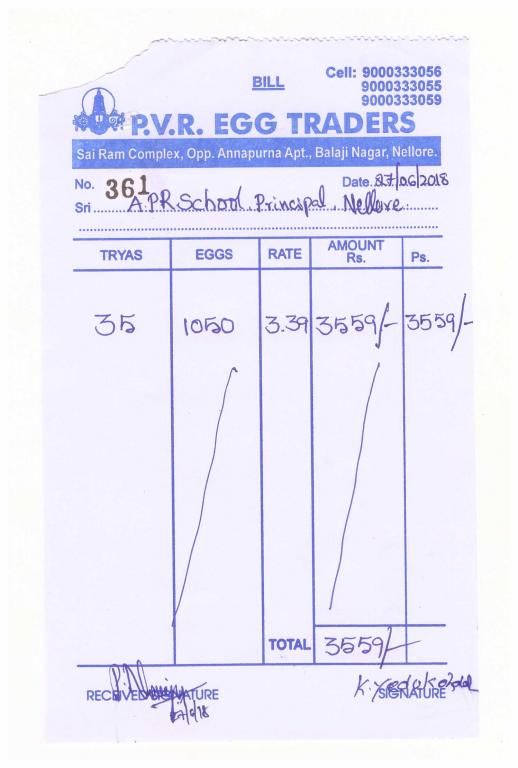 BILL
Cell: 9000333056
9000333055
9000333059
P.V.R. EGG TRADERS
Sai Ram Complex, Opp. Annapurna Apt., Balaji Nagar, Nellore.
No. 361 Date. 27/06/2018
Sri A.P.R School, Principal, Nellore.
TRYAS EGGS RATE AMOUNT Rs. Ps.
35 1050 3.39 3559/- 3559/-
TOTAL 3559/-
RECEIVED SIGNATURE SIGNATURE
27/6/18